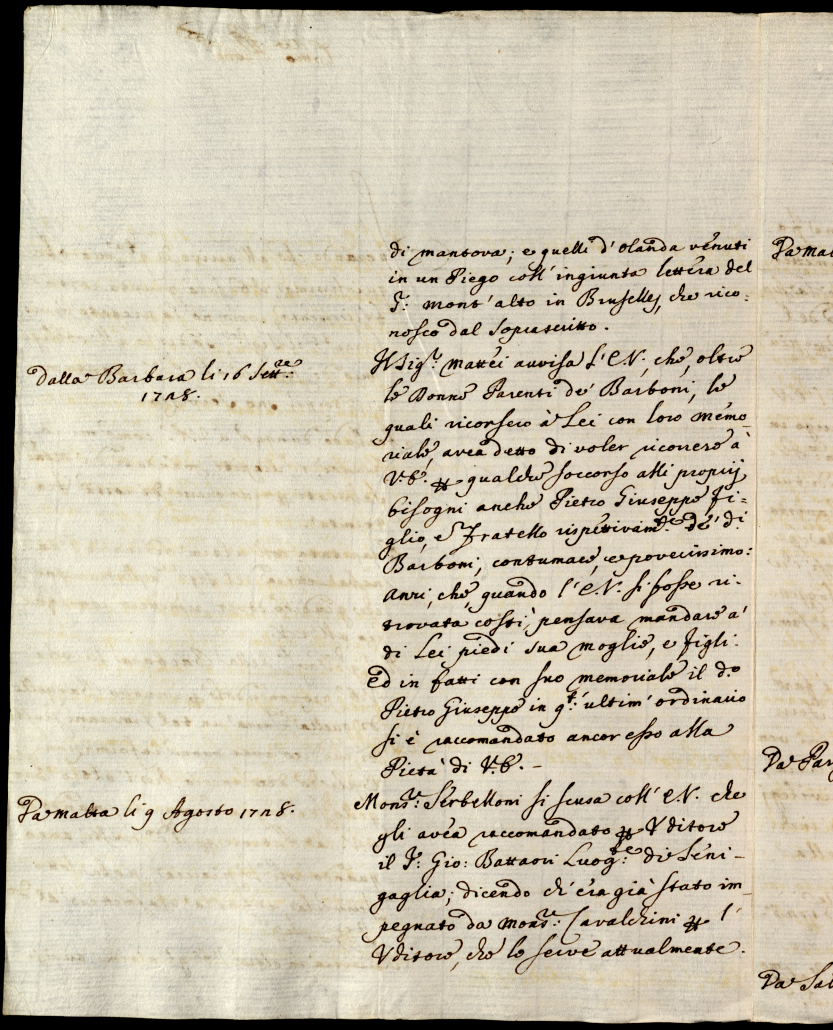 di mantova; e quelli d'olanda venuti
in un Piego coll'ingiunta lettera del
P: mont'alto in Bruselles, che rico:
nosco dal Soprascritto.
dalla Barbara li 16 Sett:re
1728.
Il Sig:r mattei avvisa l'E.V., che, oltre
le Donne Parenti de' Barboni, le
quali ricorsero à Lei con loro memo
riale, avea detto di voler ricorrere à
V.E. qualche soccorso alli proprij
bisogni anche Pietro Giuseppe fi:
glio, e Fratello rispettivam:te de' di
Barboni, contumace, e poverissimo:
Anzi, che, quando l'E.V. si fosse ri:
trovata costì, pensava mandare a'
di Lei piedi sua moglie, e figli.
Ed in fatti con suo memoriale il d:o
Pietro Giuseppe in q:t' ultim'ordinario
si è raccomandato ancor esso alla
Pietà di V.E. -
Da malta li 9 Agosto 1728.
Mons:re Serbelloni si scusa coll'E.V. che
gli avea raccomandato Vditore
il P: Gio: Battaori Luog:te di Seni-
gaglia; dicendo ch'era già stato im_
pegnato da mons:re Cavalchini l'
Vditore, che lo serve attualmente.
Da mal
Da Par
Da Sa